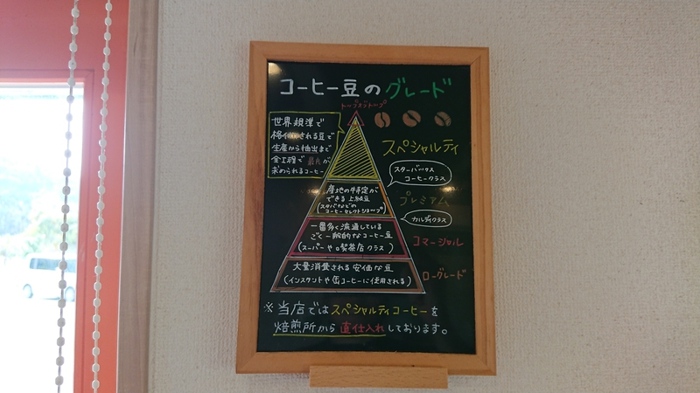 コーヒー豆のグレード
トップオブトップ
世界規準で
格付される豆で
生産から抽出まで
全工程で
求められるコーヒー
スペシャルティ
スターバックス
コーヒークラス
産地の特定が
できる上級豆
(スタバなどの
コーヒーセレクトショップ)
プレミアム
カルディクラス
一番多く流通している
ごく一般的なコーヒー豆
(スーパーや喫茶店クラス)
コマーシャル
大量消費される安価な豆
(インスタントや缶コーヒーに使用される)
ローグレード
※当店ではスペシャルティコーヒーを
焙煎所から直仕入れしております。